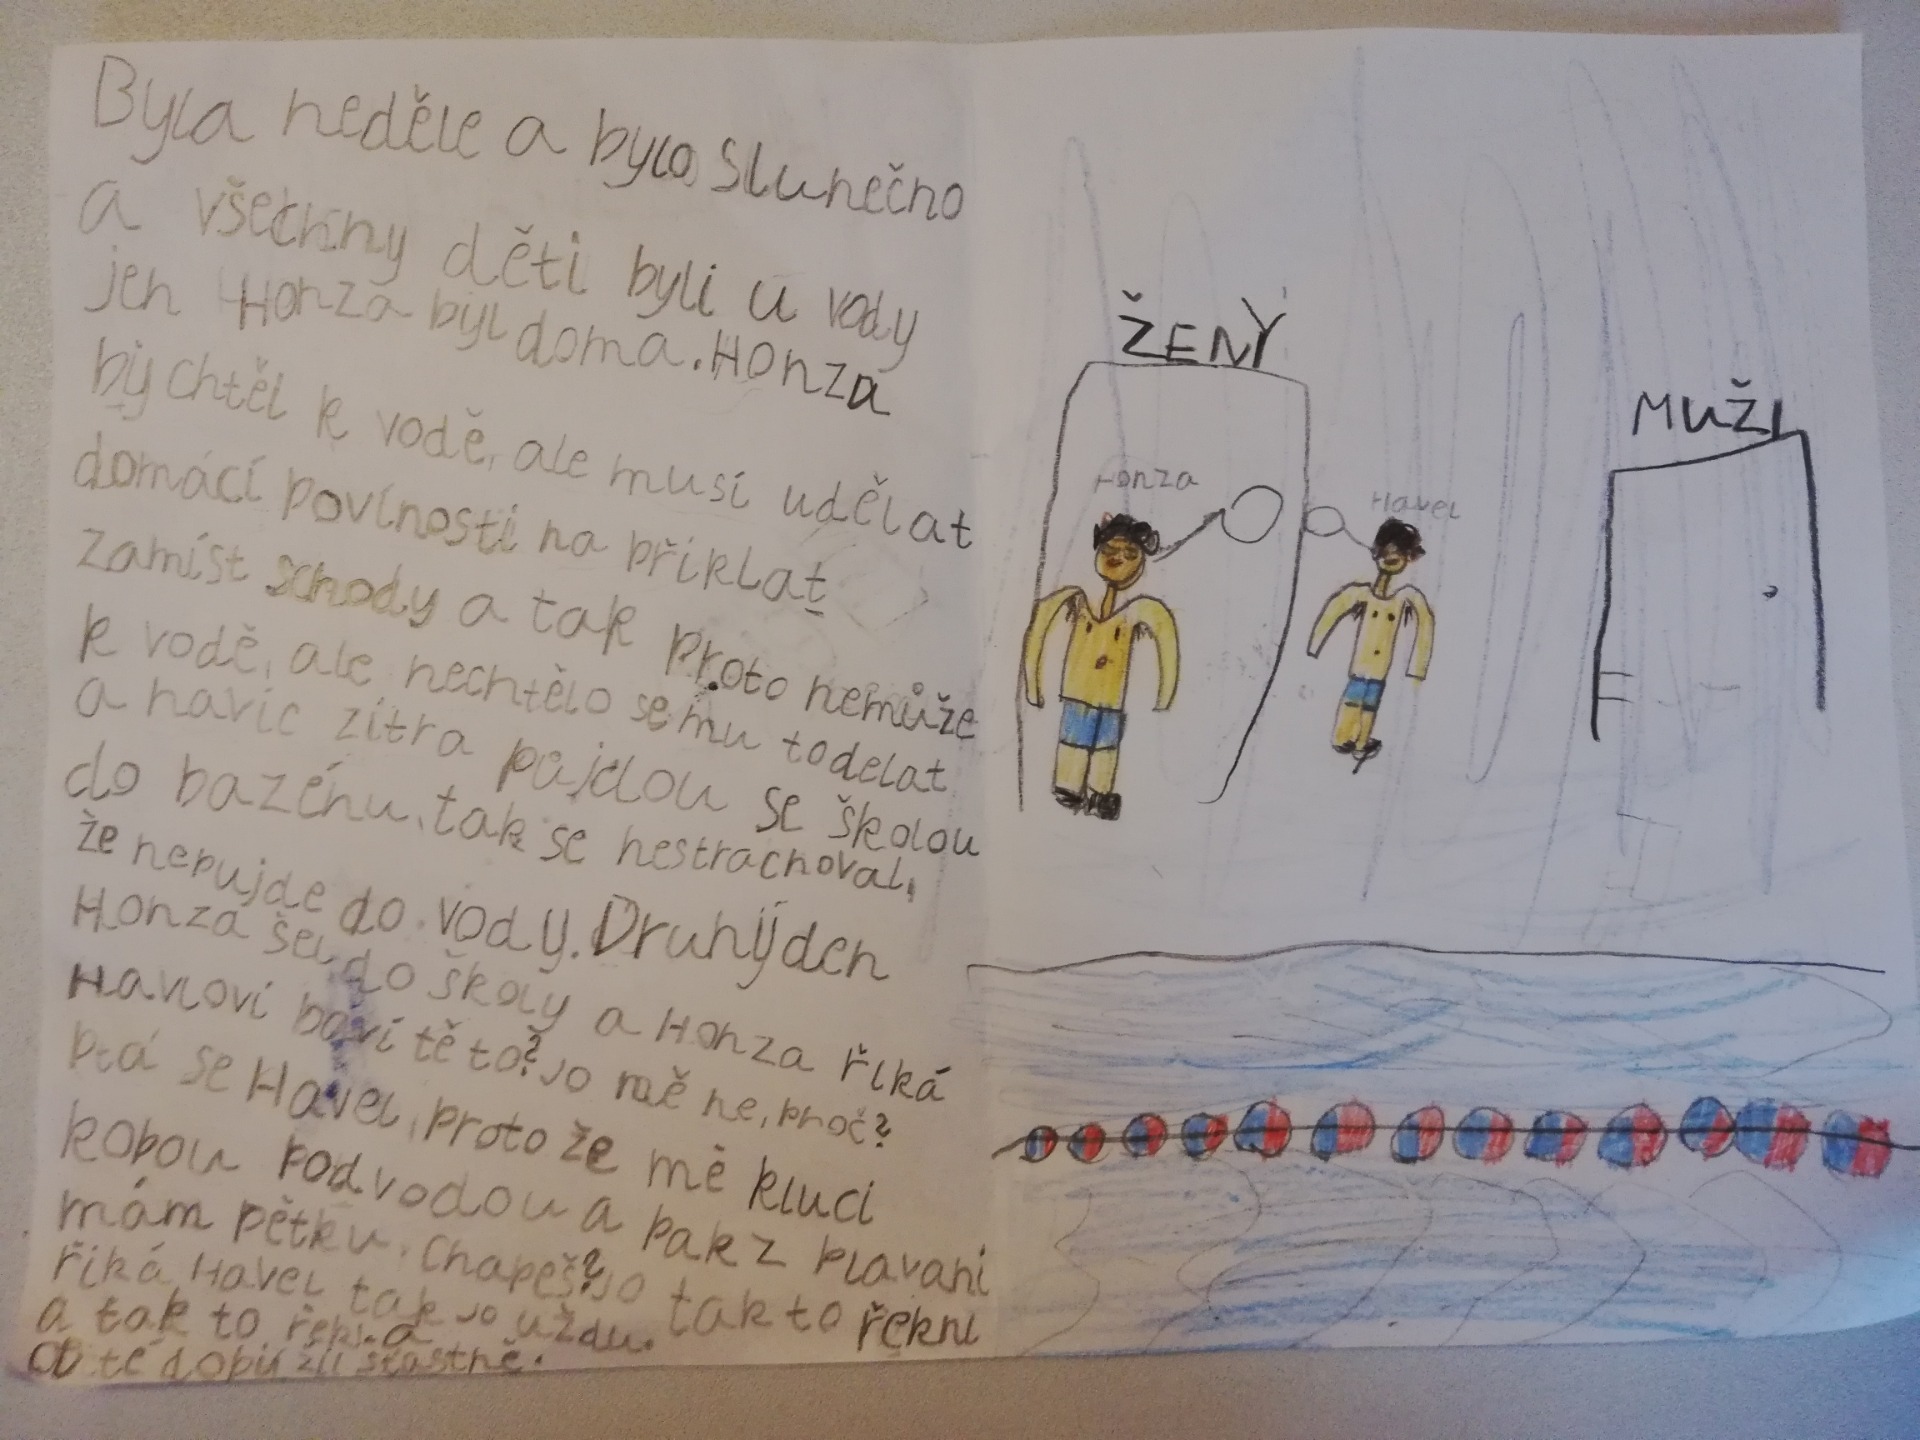 Byla neděle a bylo slunečno
a všechny děti byli u vody
jen Honza byl doma. Honza
by chtěl k vodě, ale musí udělat
domácí povínosti na příklat
zamíst schody a tak proto nemůže
k vodě, ale nechtělo se mu to delat
a navíc zítra pujdou se školou
do bazénu, tak se nestrachoval,
že nepujde do vody. Druhý den
Honza šel do školy a Honza říká
Havlovi baví tě to? jo mě ne, proč?
ptá se Havel, proto že mě kluci
kopou pod vodou a pak z plavani
mám pětku. Chapeš? jo tak to řekni
říká Havel tak jo už du.
a tak to řekla
od té dopi žil štastně.
ŽENY
MUŽI
Honza
Havel